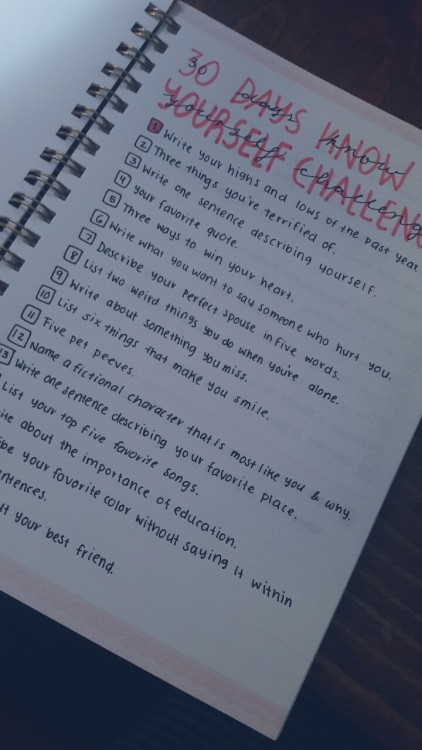 30 DAYS KNOW
YOURSELF CHALLENG
1 Write your highs and lows of the past year.
2 Three things you're terrified of.
3 Write one sentence describing yourself.
4 your favorite quote.
5 Three ways to win your heart.
6 Write what you want to say someone who hurt you.
7 Describe your perfect spouse in five words.
8 List two weird things you do when you're alone.
9 Write about something you miss.
10 List six things that make you smile.
11 Five pet peeves.
12 Name a fictional character that is most like you & why.
13 Write one sentence describing your favorite place.
List your top five favorite songs.
ite about the importance of education.
ibe your favorite color without saying it within
entences.
ut your best friend.